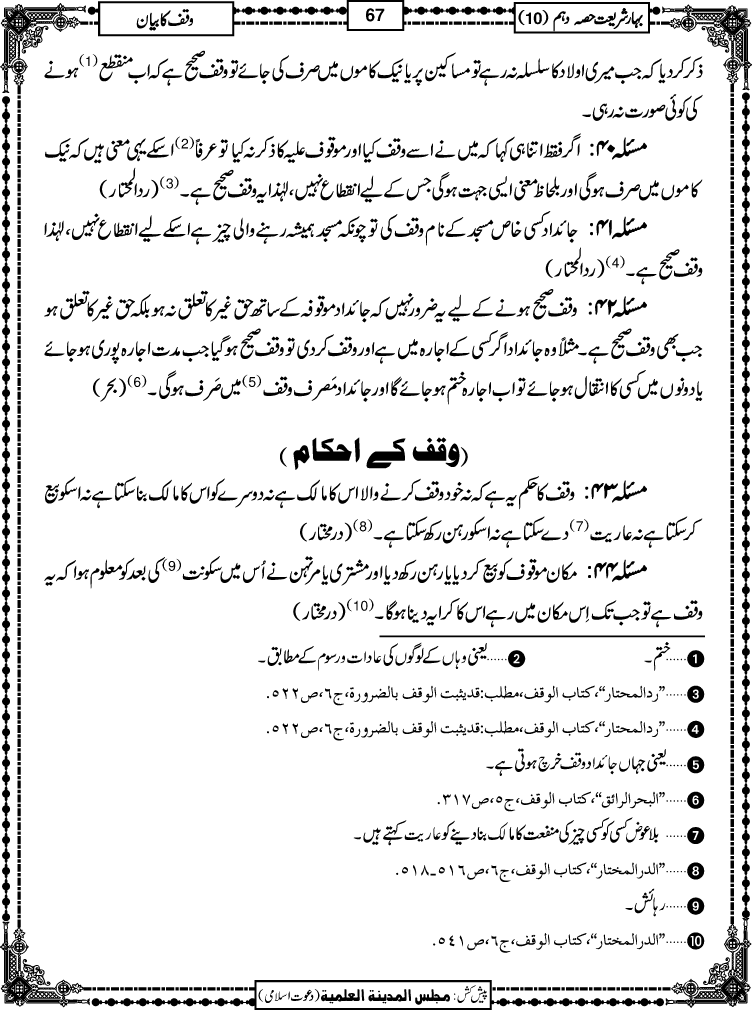 بہارشریعت حصہ دہم (10) 67 وقف کا بیان
ذکر کردیا کہ جب میری اولاد کا سلسلہ نہ رہے تو مساکین پر یا نیک کاموں میں صرف کی جائے تو وقف صحیح ہے کہ اب منقطع (1) ہونے
کی کوئی صورت نہ رہی۔
مسئلہ ۴۰: اگر فقط اتنا ہی کہا کہ میں نے اسے وقف کیا اور موقوف علیہ کا ذکر نہ کیا تو عرفاً (2) اسکے یہی معنی ہیں کہ نیک
کاموں میں صرف ہوگی اور بلحاظ معنی ایسی جہت ہوگی جس کے لیے انقطاع نہیں، لہٰذا یہ وقف صحیح ہے۔ (3) (ردالمحتار)
مسئلہ ۴۱: جائداد کسی خاص مسجد کے نام وقف کی تو چونکہ مسجد ہمیشہ رہنے والی چیز ہے اسکے لیے انقطاع نہیں، لہٰذا
وقف صحیح ہے۔ (4) (ردالمحتار)
مسئلہ ۴۲: وقف صحیح ہونے کے لیے یہ ضرور نہیں کہ جائداد موقوفہ کے ساتھ حق غیر کا تعلق نہ ہو بلکہ حق غیر کا تعلق ہو
جب بھی وقف صحیح ہے۔ مثلاً وہ جائداد اگر کسی کے اجارہ میں ہے اور وقف کردی تو وقف صحیح ہوگیا جب مدت اجارہ پوری ہوجائے
یا دونوں میں کسی کا انتقال ہوجائے تو اب اجارہ ختم ہوجائے گا اور جائداد مَصرف وقف (5) میں صَرف ہوگی۔ (6) (بحر)
(وقف کے احکام)
مسئلہ ۴۳: وقف کا حکم یہ ہے کہ نہ خود وقف کرنے والا اس کا مالک ہے نہ دوسرے کو اس کا مالک بنا سکتا ہے نہ اسکو بیع
کرسکتا ہے نہ عاریت (7) دے سکتا ہے نہ اسکو رہن رکھ سکتا ہے۔ (8) (درمختار)
مسئلہ ۴۴: مکان موقوف کو بیع کردیا یا رہن رکھ دیا اور مشتری یا مرتہن نے اُس میں سکونت (9) کی بعد کو معلوم ہوا کہ یہ
وقف ہے تو جب تک اِس مکان میں رہے اس کا کرایہ دینا ہوگا۔ (10) (درمختار)
1......ختم۔ 2......یعنی وہاں کے لوگوں کی عادات ورسوم کے مطابق۔
3......"ردالمحتار"، کتاب الوقف، مطلب: قدیثبت الوقف بالضرورة، ج٦، ص٥٢٢.
4......"ردالمحتار"، کتاب الوقف، مطلب: قدیثبت الوقف بالضرورة، ج٦، ص٥٢٢.
5......یعنی جہاں جائداد وقف خرچ ہوتی ہے۔
6......"البحرالرائق"، کتاب الوقف، ج٥، ص٣١٧.
7...... بلاعوض کسی کو کسی چیز کی منفعت کا مالک بنا دینے کو عاریت کہتے ہیں۔
8......"الدرالمختار"، کتاب الوقف، ج٦، ص٥١٦-٥١٨.
9......رہائش۔
10......"الدرالمختار"، کتاب الوقف، ج٦، ص٥٤١.
پیش کش: مجلس المدینة العلمیة (دعوت اسلامی)